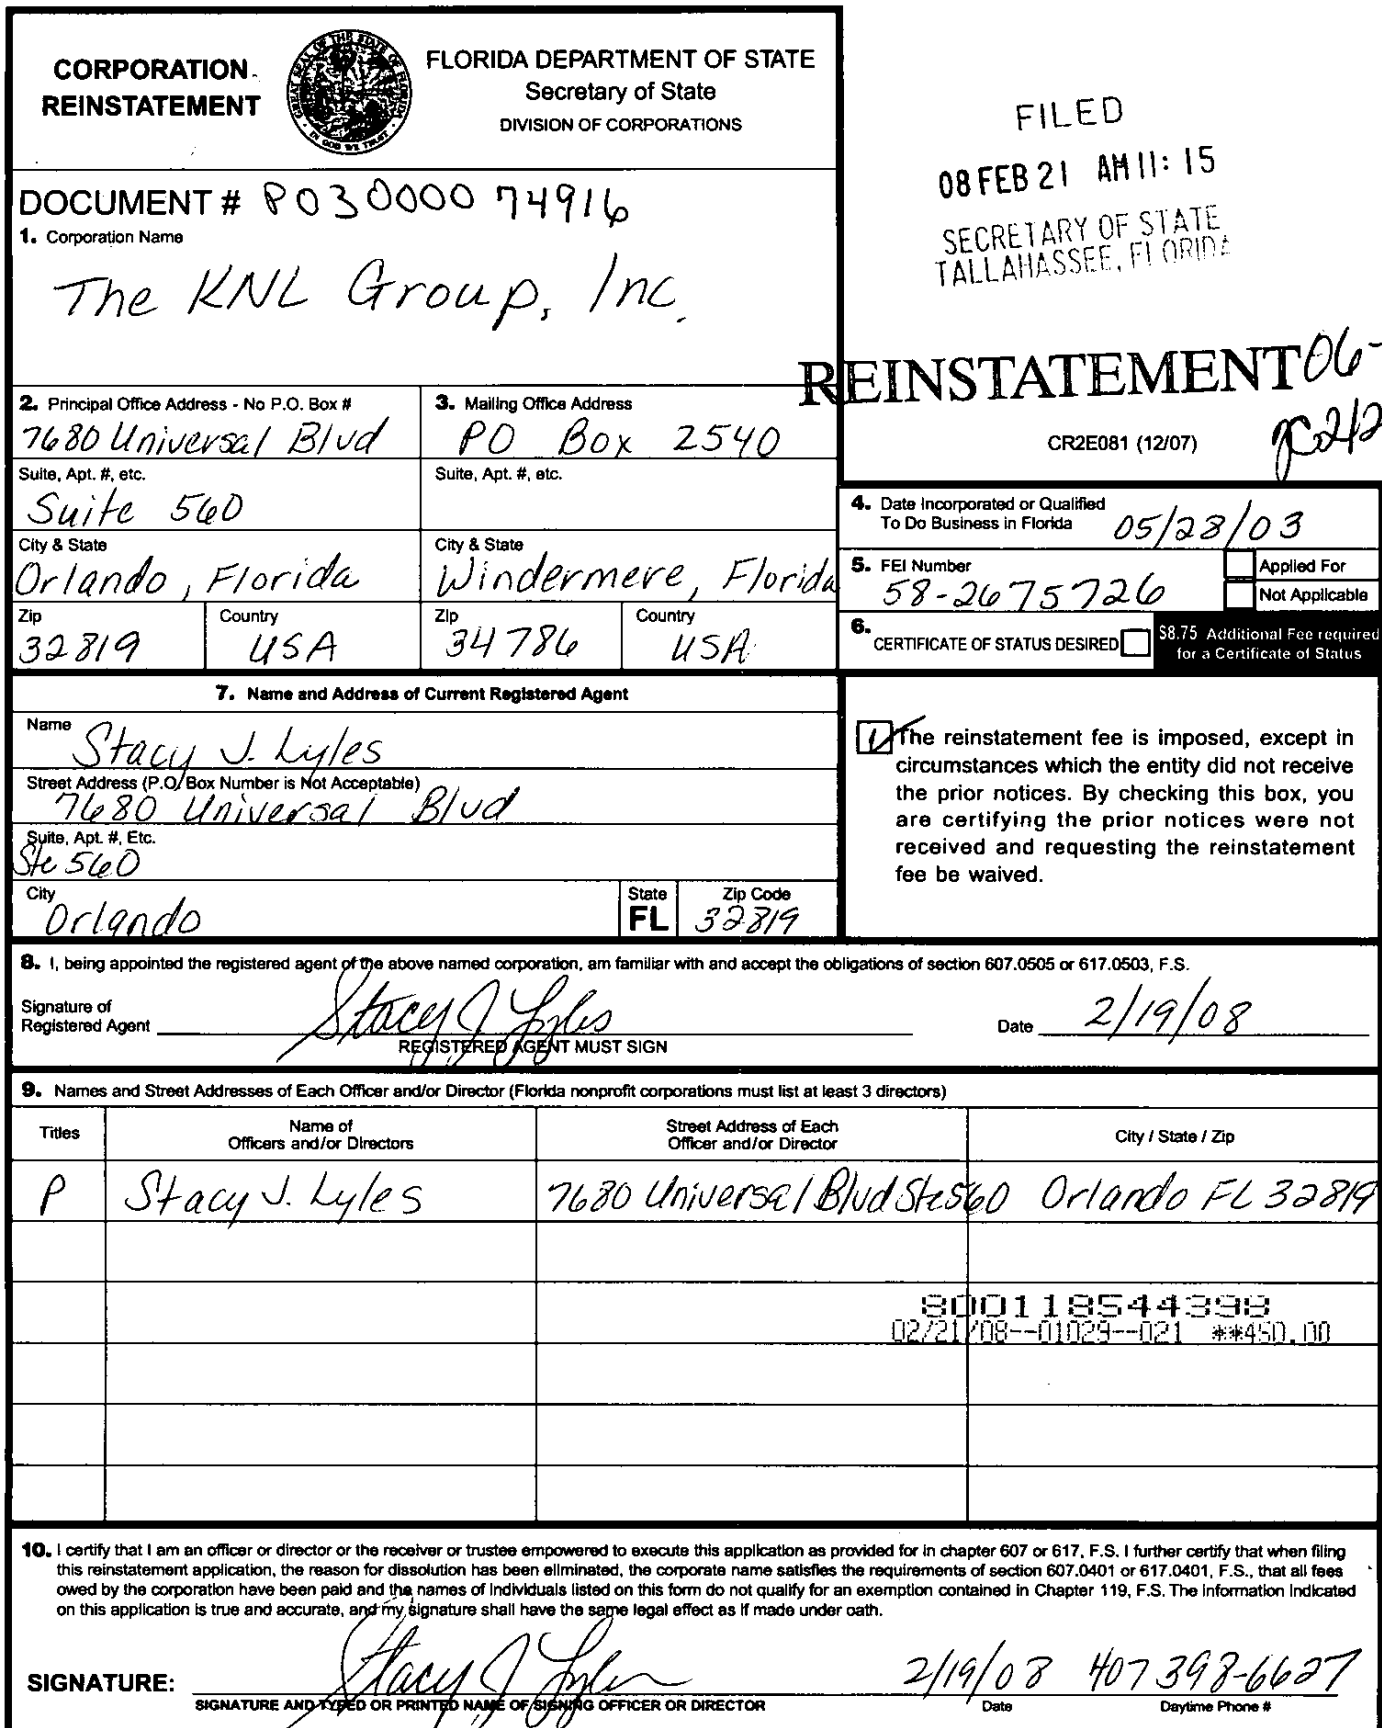 CORPORATION
REINSTATEMENT
GREAT SEAL OF THE STATE OF FLORIDA
IN GOD WE TRUST
FLORIDA DEPARTMENT OF STATE
Secretary of State
DIVISION OF CORPORATIONS
FILED
08 FEB 21 AM 11: 15
SECRETARY OF STATE
TALLAHASSEE, FLORIDA
DOCUMENT # P03000074916
1. Corporation Name
The KNL Group, Inc.
REINSTATEMENT 06-
CR2E081 (12/07)
2. Principal Office Address - No P.O. Box #
7680 Universal Blvd
3. Mailing Office Address
PO Box 2540
Suite, Apt. #, etc.
Suite 560
Suite, Apt. #, etc.
City & State
Orlando, Florida
City & State
Windermere, Florida
Zip
32819
Country
USA
Zip
34786
Country
USA
4. Date Incorporated or Qualified
To Do Business in Florida 05/28/03
5. FEI Number
58-2675726
Applied For
Not Applicable
6. CERTIFICATE OF STATUS DESIRED
$8.75 Additional Fee required
for a Certificate of Status
7. Name and Address of Current Registered Agent
Name
Stacy J. Lyles
Street Address (P.O. Box Number is Not Acceptable)
7680 Universal Blvd
Suite, Apt. #, Etc.
Ste 560
City
Orlando
State
FL
Zip Code
32819
The reinstatement fee is imposed, except in
circumstances which the entity did not receive
the prior notices. By checking this box, you
are certifying the prior notices were not
received and requesting the reinstatement
fee be waived.
8. I, being appointed the registered agent of the above named corporation, am familiar with and accept the obligations of section 607.0505 or 617.0503, F.S.
Signature of
Registered Agent Stacy J Lyles
REGISTERED AGENT MUST SIGN
Date 2/19/08
9. Names and Street Addresses of Each Officer and/or Director (Florida nonprofit corporations must list at least 3 directors)
Titles
Name of
Officers and/or Directors
Street Address of Each
Officer and/or Director
City / State / Zip
P Stacy J. Lyles 7680 Universal Blvd Ste 560 Orlando FL 32819
800118544398
02/21/08--01029--021 **450.00
10. I certify that I am an officer or director or the receiver or trustee empowered to execute this application as provided for in chapter 607 or 617, F.S. I further certify that when filing
this reinstatement application, the reason for dissolution has been eliminated, the corporate name satisfies the requirements of section 607.0401 or 617.0401, F.S., that all fees
owed by the corporation have been paid and the names of individuals listed on this form do not qualify for an exemption contained in Chapter 119, F.S. The information indicated
on this application is true and accurate, and my signature shall have the same legal effect as if made under oath.
SIGNATURE: Stacy J Lyles 2/19/08 407 398-6627
SIGNATURE AND TYPED OR PRINTED NAME OF SIGNING OFFICER OR DIRECTOR
Date
Daytime Phone #